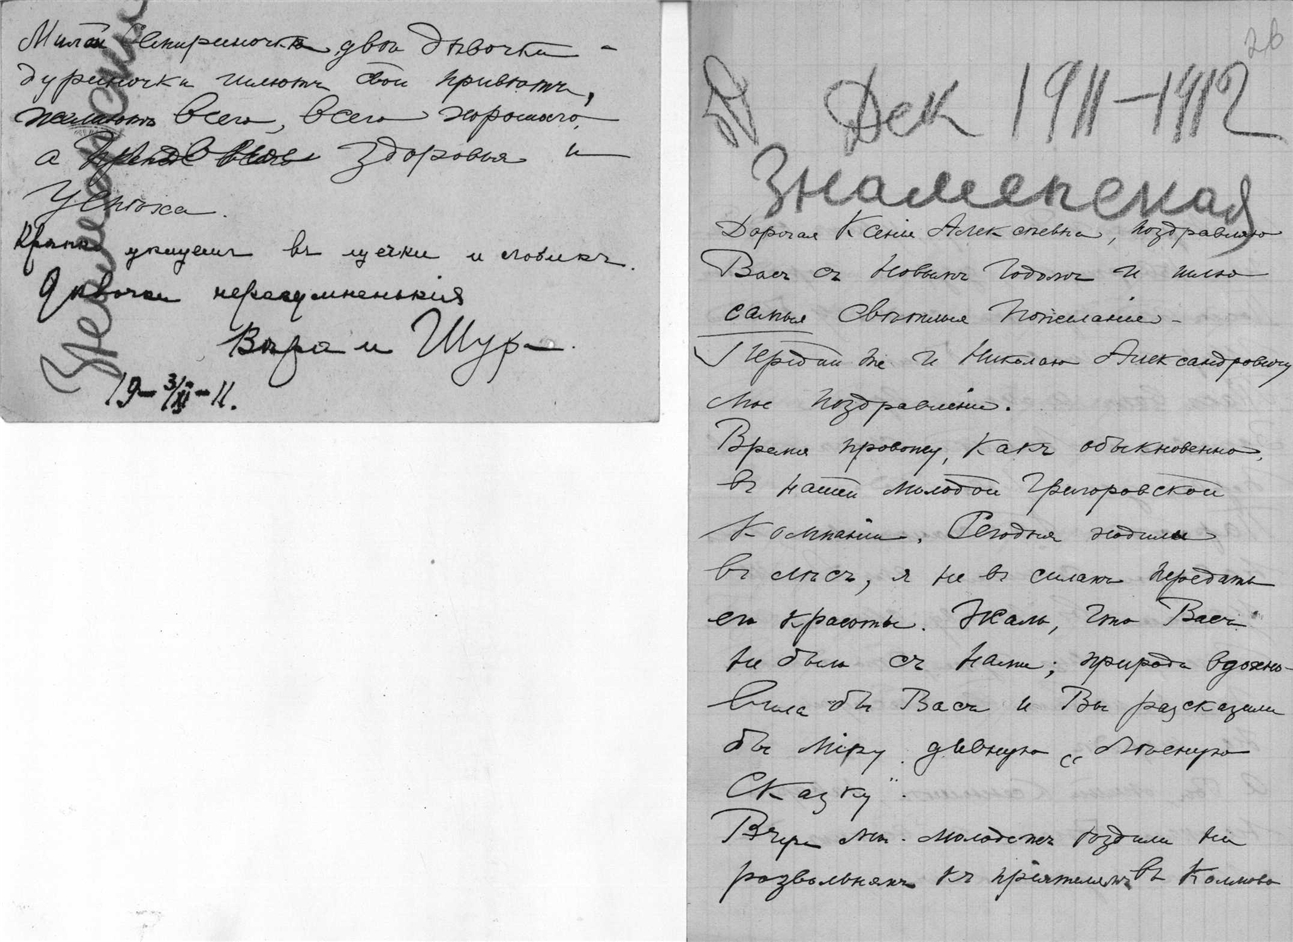 Милая двои дѣвочки -
дуриночки шлютъ свои привѣты,
желаютъ всего, всего хорошаго,
а прежде всего здоровья и
успѣха.
Крѣпко цѣлуемъ въ щечки и лобикъ.
Дѣвочки неразумненькія
Вѣра и Шура.
19-3/XII-11.
26
Дек 1911-1912
Знаменская
Дорогая Ксенія Алексѣевна, поздравляю
Васъ съ Новымъ Годомъ и шлю
самыя свѣтлыя пожеланія -
Передай же и Николаю Александровичу
мое поздравленіе.
Время провожу, какъ обыкновенно,
въ нашей молодой Григоровской
компаніи. Сегодня ходили
въ лѣсъ, я не въ силахъ передать
его красоты. Жаль, что Васъ
не было съ нами; природа вдохно-
вила бы Васъ и Вы разсказали
бы міру дивную „Лѣсную
Сказку".
Вчера мы молодежь ѣздили на
розвальняхъ къ пріятелямъ въ Колмово